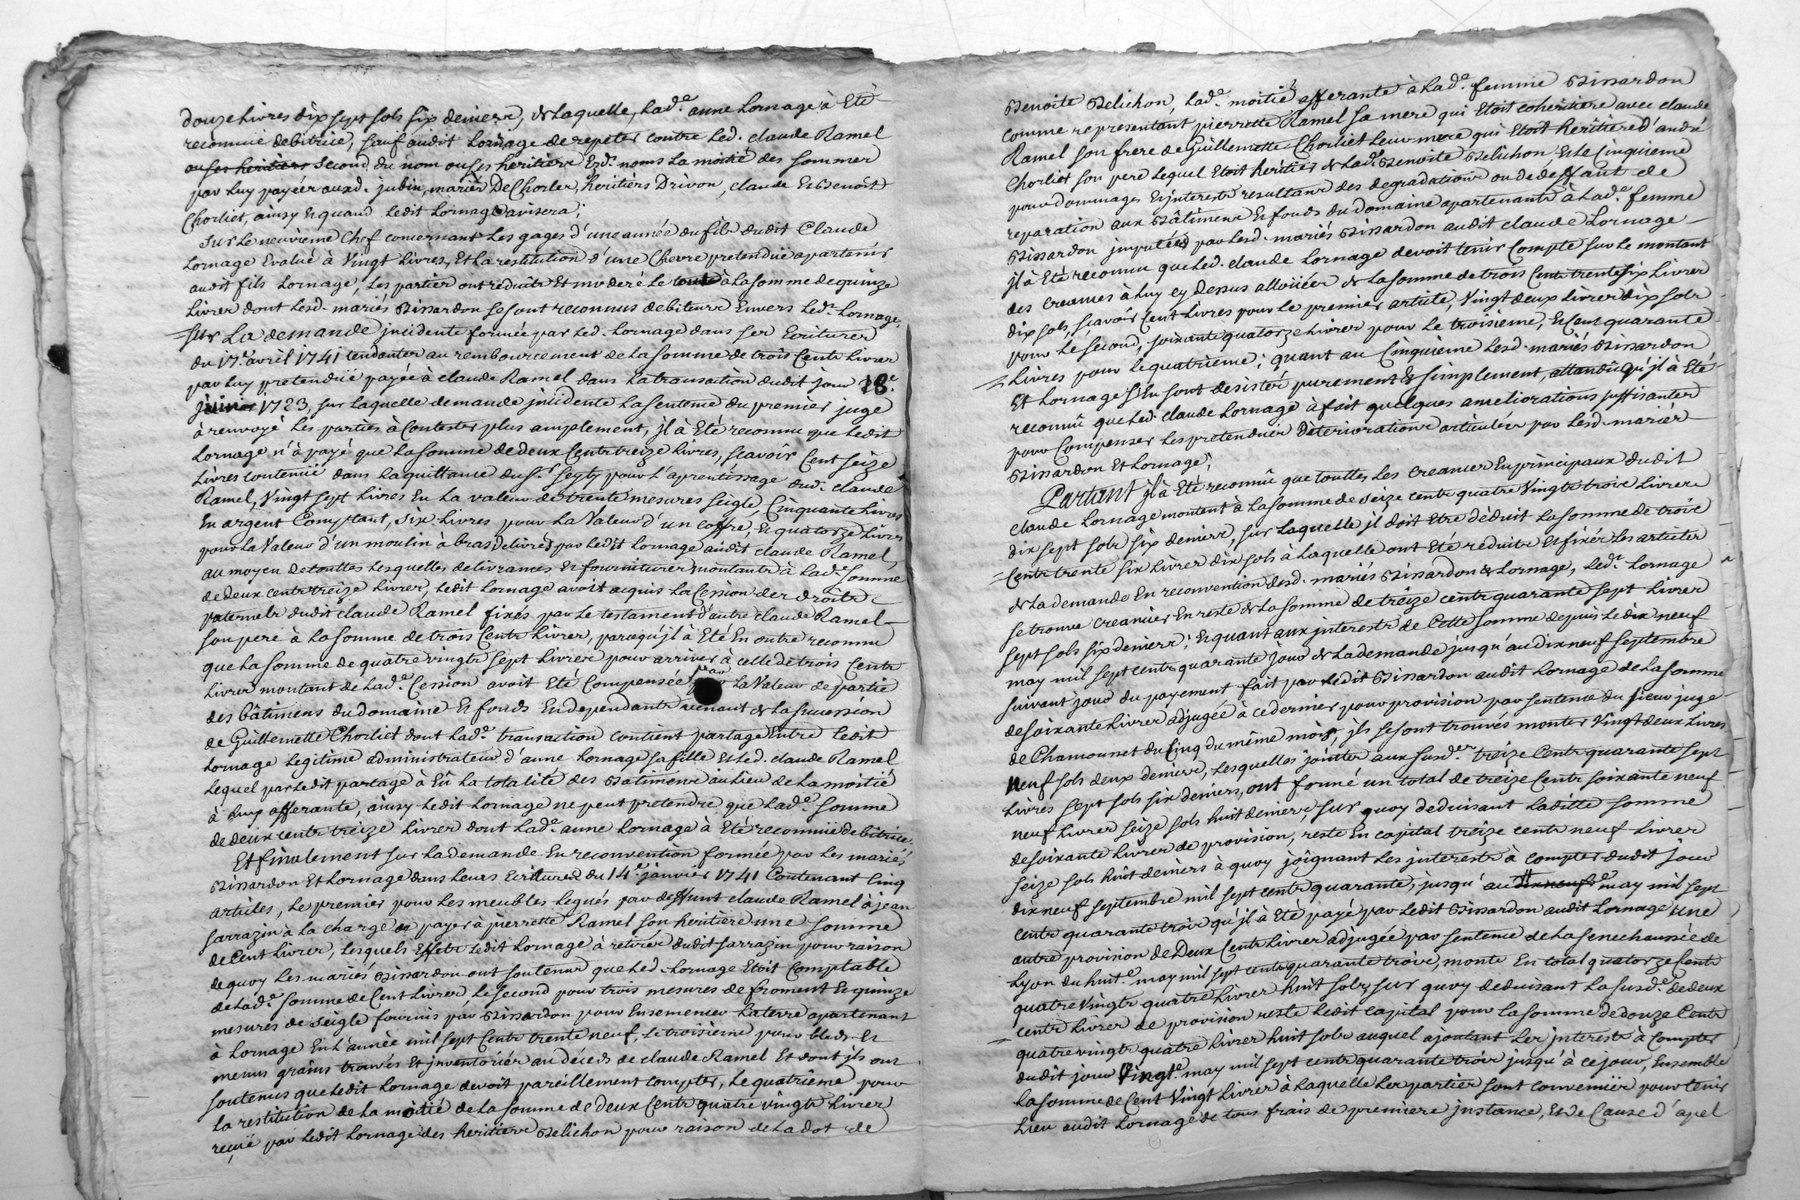 douze livres dix sept sols six deniers, de laquelle, lad.e anne Lornage à Eté
reconnüe debitrice, sauf audit Lornage de repeter contre led. claude Ramel
ou ses heritiers second du nom ou ses heritiers Esd. noms La moitié des sommes
par luy payées auxd. jubin, mariés De Chorler, heritiers Drivon, claude Et Benoit
Chorliet, ainsy Et quand ledit Lornage avisera;
Sur Le neuvieme Chef concernant Les gages d'une année du fils dudit Claude
Lornage Evalué à Vingt Livres, Et La restitution d'une Chevre pretendüe apartenir
audit fils Lornage, Les parties ont réduits Et moderé Le tout à La somme de quinze
Livres dont Lesd. mariés Bissardon se sont reconnus debiteurs Envers Led. Lornage,
Sur La demande jncidente formée par Led. Lornage dans ses Ecritures
du 17.e avril 1741 tendantes au remboursement de La somme de trois Cents Livres
par Luy pretendüe payée à claude Ramel dans La transaction dudit jour 18.e
1723, sur laquelle demande jncidente La sentence du premier juge
à renvoyé Les parties à Contester plus amplement, jl à Eté reconnu que Ledit
Lornage n'à payé que La somme de deux Cents treize Livres, sçavoir Cent seize
Livres contenüe dans La quittance du S.r pour L'aprentissage dud. claude
Ramel, Vingt sept Livres En La valeur de trente mesures seigle, Cinquante Livres
En argent Comptant, six Livres pour La Valeur d'un coffre, Et quatorze Livres
pour La Valeur d'un moulin à bras delivrés par Ledit Lornage audit claude Ramel,
au moyen de touttes Lesquelles delivrances Et fournitures montants à Lad.e somme
de deux cents treize Livres, Ledit Lornage avoit acquis La Cession des droits
paternels dudit claude Ramel fixés par Le testament d'autre claude Ramel
son pere à La somme de trois Cents Livres, parce qu'jl à Eté En outre reconnu
que La somme de quatre vingts sept Livres pour arriver à celle de trois Cents
Livres montant de Lad.e Cession avoit Eté Compensée par La Valeur de partie
des bâtimens du domaine Et fonds En dependants venant de La succession
de Guillemette Chorliet dont Lad.e transaction contient partage Entre Ledit
Lornage Legitime administrateur d'anne Lornage sa fille Et Led. claude Ramel
Lequel par Ledit partage à Eû La totalité des Batimens au Lieu de La moitié
à Luy afferante, ainsy Ledit Lornage ne peut pretendre que Lad.e somme
de deux cents treize Livres dont Lad.e anne Lornage à Eté reconnüe debitrice.
Et finalement sur La demande En reconvention formée par Les mariés
Bissardon Et Lornage dans Leurs Ecritures du 14.e janvier 1741 Contenant Cinq
articles, Le premier pour Les meubles Legués par deffunt claude Ramel à jean
sarrazin à La charge de payer à pierrette Ramel son heritiere une somme
de Cent Livres, Lesquels Effets Ledit Lornage à retirés dudit sarrazin pour raison
de quoy Les mariés Bissardon ont soutenus que Led. Lornage Etoit Comptable
de Lad.e somme de Cent Livres, Le second pour trois mesures de froment Et quinze
mesures de seigle fournis par Bissardon pour Ensemencer La terre apartenant
à Lornage En L'année mil sept Cents trente neuf, Le troisieme pour bleds Et
menus grains trouvés Et jnventoriés au deceds de claude Ramel Et dont jls ont
soutenus que Ledit Lornage devoit pareillement compter, Le quatrieme pour
La restitution de La moitié de La somme de deux Cents quatre vingts Livres
reçuë par Ledit Lornage des heritiers Belichon pour raison de La dot de
Benoite Belichon, Lad.e moitié afferante à Lad.e femme Bissardon
comme representant pierrette Ramel sa mere qui Etoit coheritiere avec claude
Ramel son frere de Guillemette Chorliet Leur mere qui Etoit heritiere d'andré
Chorliet son pere Lequel Etoit heritier de Lad.e Benoite Belichon, Et Le Cinquieme
pour dommages Et jnterests resultants des degradations ou de deffaut de
reparation aux Bâtimens Et fonds du domaine apartenants à Lad.e femme
Bissardon jmputées par Lesd. mariés Bissardon audit claude Lornage
jl à Eté reconnu que Led. claude Lornage devoit tenir Compte sur Le montant
des creances à Luy cy dessus alloüées de La somme de trois Cents trente six Livres
dix sols, sçavoir Cent Livres pour Le premier article, Vingt deux Livres dix sols
pour Le second, soixante quatorze Livres pour Le troisieme, Et Cent quarante
Livres pour Le quatrieme; quant au Cinquieme Lesd. mariés Bissardon
Et Lornage s'En sont desistés purement Et simplement, attendu qu'jl à Eté
reconnû que Led. claude Lornage à fait quelques ameliorations suffisantes
pour Compenser Les pretendües deteriorations articulées par Lesd. mariés
Bissardon Et Lornage;
Partant jl à Eté reconnû que touttes Les creances En principaux dudit
claude Lornage montent à La somme de seize cents quatre Vingts trois Livres
dix sept sols six deniers, sur Laquelle jl doit Etre déduit La somme de trois
Cents trente six Livres dix sols à Laquelle ont Eté réduits Et fixés Les articles
de La demande En reconvention desd. mariés Bissardon & Lornage, Led. Lornage
se trouve creancier En reste de La somme de treize cents quarante sept Livres
sept sols six deniers; Et quant aux jnterests de Cette somme depuis Le dix neuf
may mil sept cents quarante jour de La demande jusqu'au dix neuf septembre
suivant jour du payement fait par Ledit Bissardon audit Lornage de La somme
de soixante Livres adjugée à ce dernier pour provision par sentence du sieur juge
de Chamousset du Cinq du même mois, jls se sont trouvés monter Vingt deux Livres
neuf sols deux deniers, Lesquelles jointes aux susd.es treize Cents quarante sept
Livres sept sols six deniers, ont formé un total de treize Cents soixante neuf
neuf Livres seize sols huit deniers, sur quoy deduisant Laditte somme
de soixante Livres de provision, reste En capital treize cents neuf Livres
seize sols huit deniers à quoy joignant Les jnterests à compter dudit jour
dix neuf septembre mil sept cents quarante, jusqu'au dix neuf.e may mil sept
cents quarante trois qu'jl à Eté payé par Ledit Bissardon audit Lornage une
autre provision de Deux Cents Livres adjugée par sentence de La senechaussée de
Lyon du huit.e may mil sept cents quarante trois, monte En total quatorze Cents
quatre Vingts quatre Livres huit sols, sur quoy deduisant La susd.e de deux
cents Livres de provision reste Ledit capital pour La somme de douze Cents
quatre vingts quatre Livres huit sols auquel ajoutant Les jnterests à compter
dudit jour Vingt.e may mil sept cents quarante trois jusqu'à ce jour, Ensemble
La somme de Cent Vingt Livres à Laquelle Les parties sont convenües pour tenir
Lieu audit Lornage de tous frais de premiere jnstance, Et de Cause d'apel